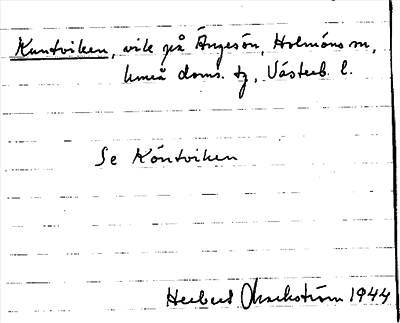 Kuntviken, vik på Ängesön, Holmöns sn,
Umeå doms. tg, Västerb. l.
Se Köntviken
Herbert 1944